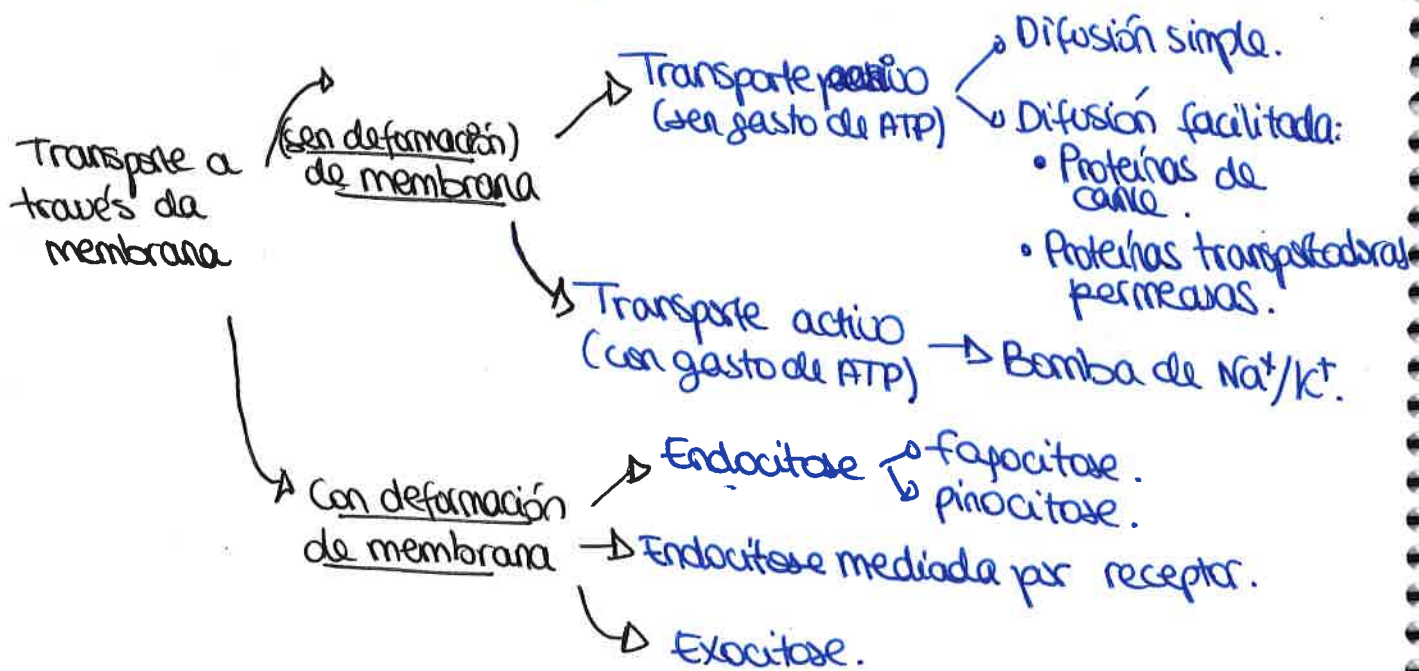 Transporte a
través da
membrana
(sen deformación)
de membrana
Transporte pasivo
(sen gasto de ATP)
Difusión simple.
Difusión facilitada:
• Proteínas de
canle.
• Proteínas transportadoras
permeasas.
Transporte activo
(con gasto de ATP)
Bomba de Na⁺/K⁺.
Con deformación
de membrana
Endocitose
fagocitose.
pinocitose.
Endocitose mediada por receptor.
Exocitose.